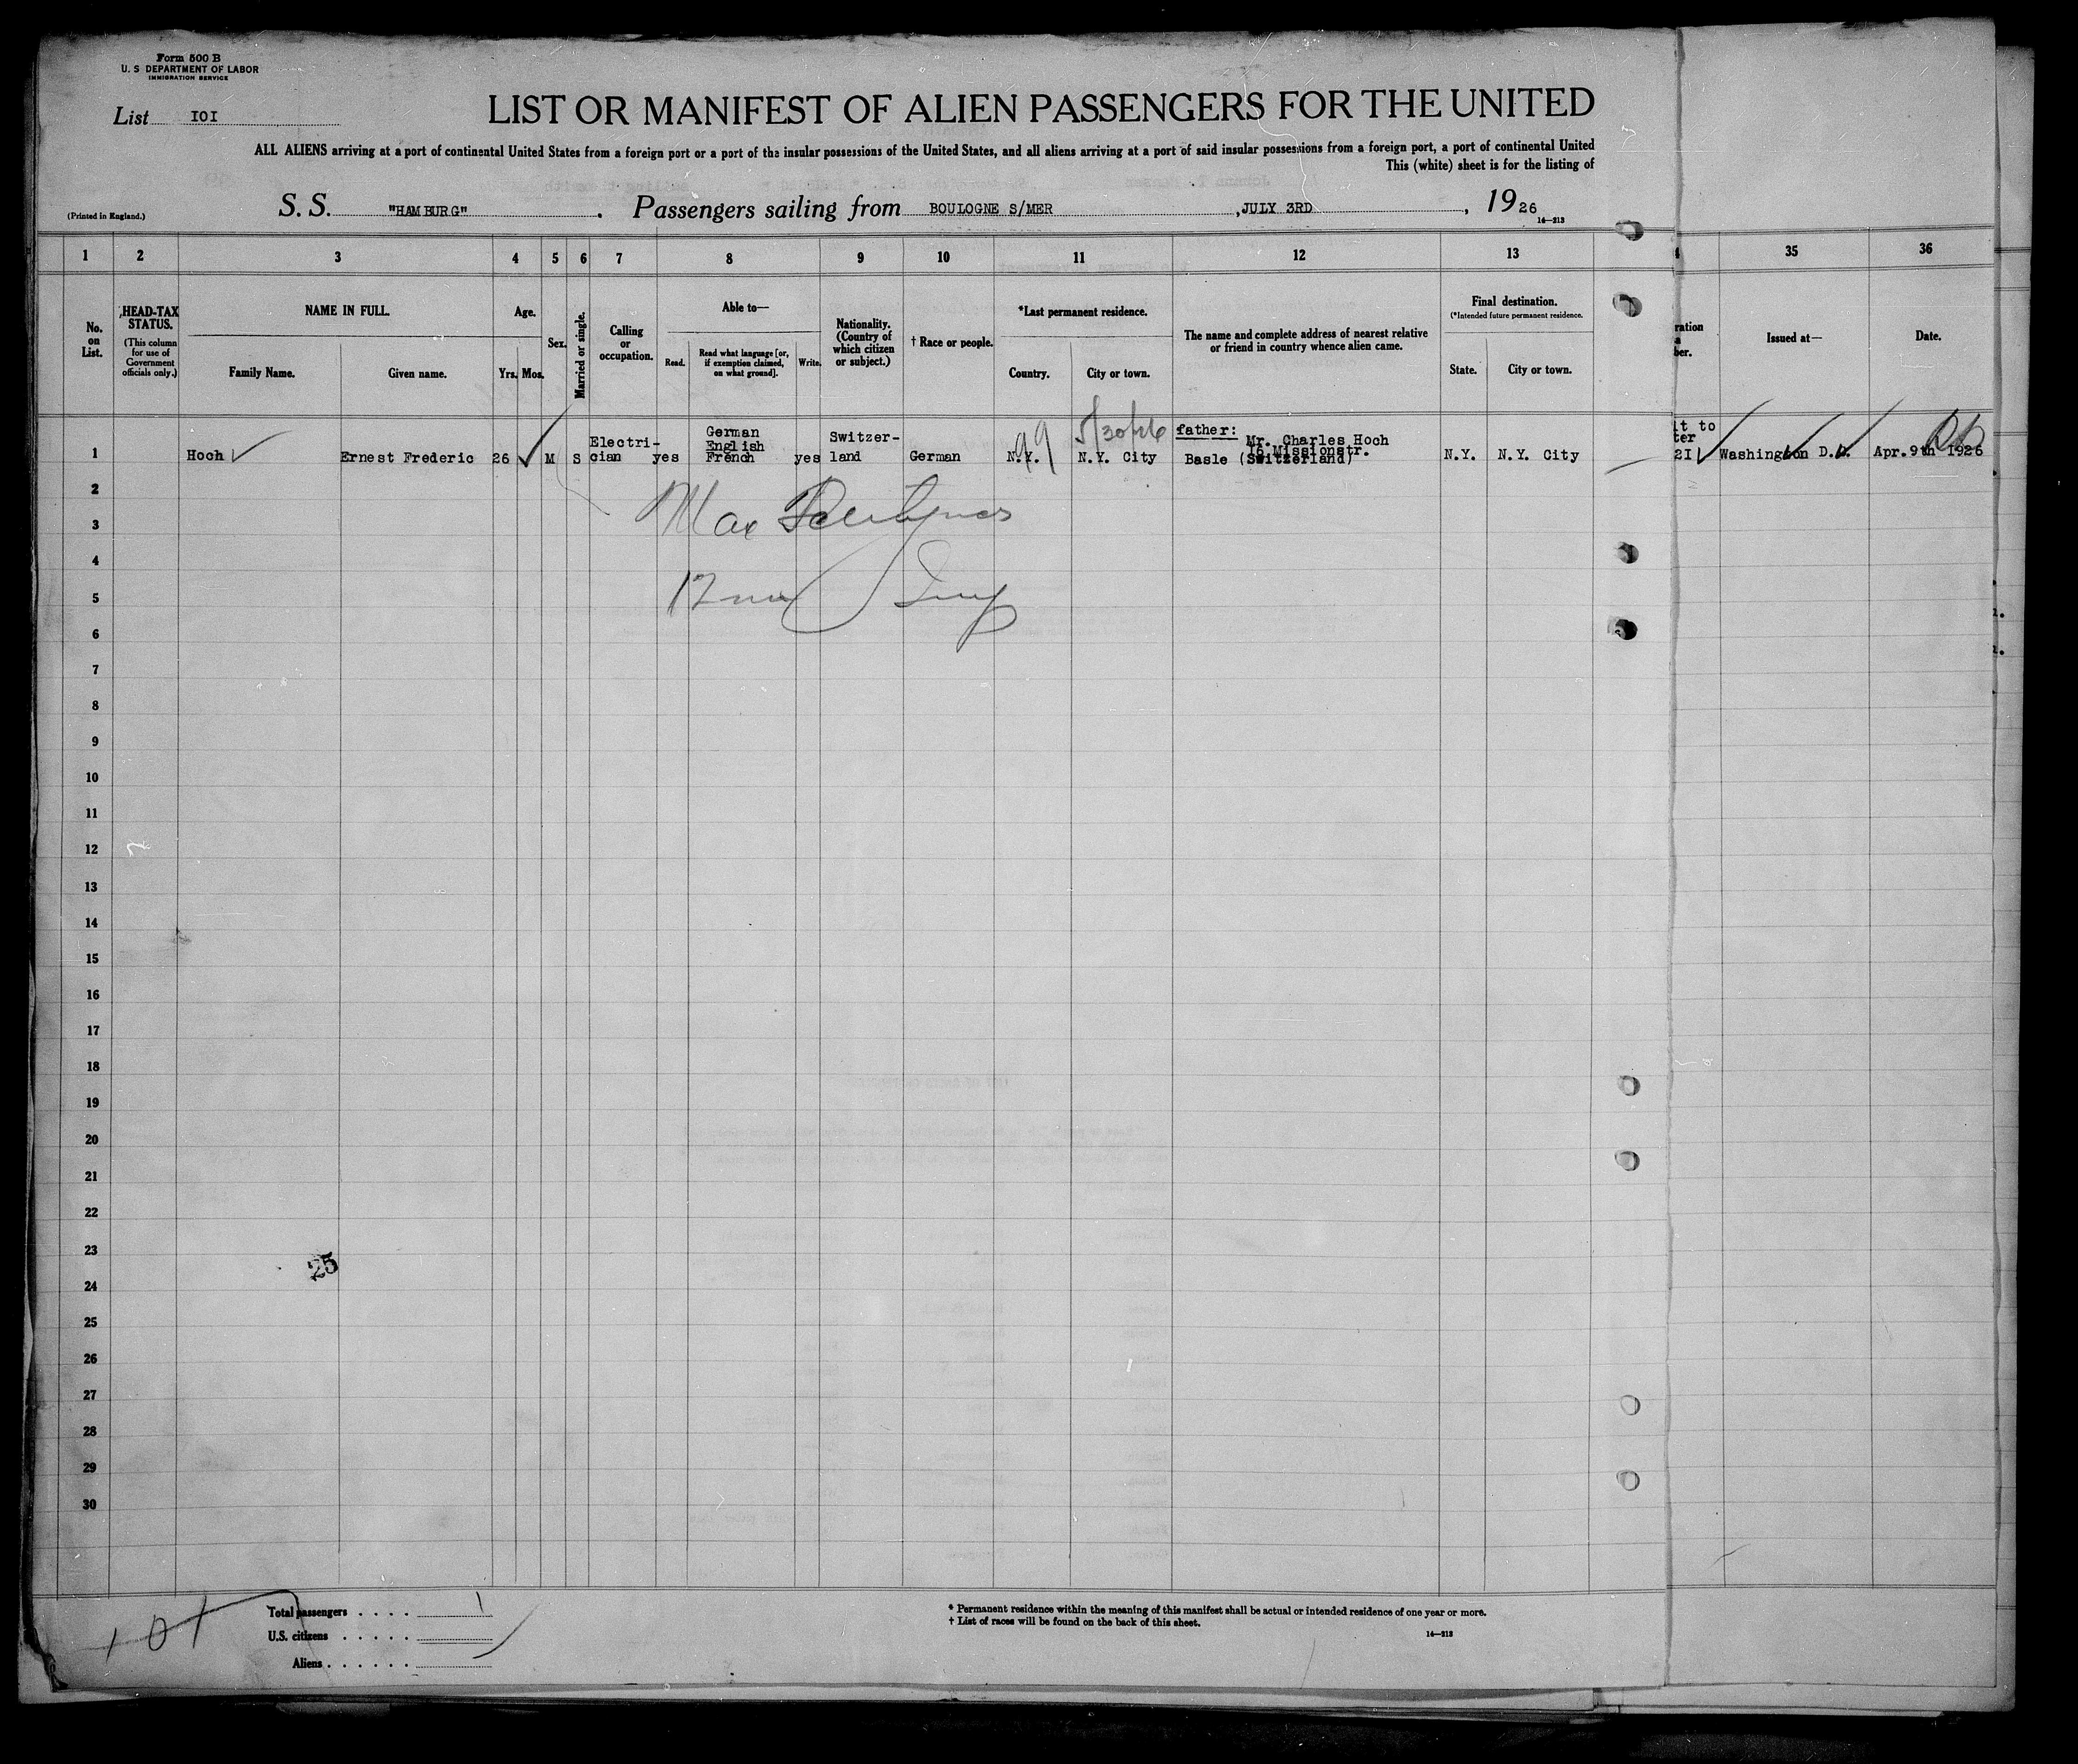 Form 500 B
U. S DEPARTMENT OF LABOR
IMMIGRATION SERVICE
List IOI
LIST OR MANIFEST OF ALIEN PASSENGERS FOR THE UNITED
ALL ALIENS arriving at a port of continental United States from a foreign port or a port of the insular possessions of the United States, and all aliens arriving at a port of said insular possessions from a foreign port, a port of continental United
This (white) sheet is for the listing of
(Printed in England.)
S. S. "HAMBURG" . Passengers sailing from BOULOGNE S/MER ,JULY 3RD , 1926
14—213
1 2 3 4 5 6 7 8 9 10 11 12 13 35 36
No. on List.
HEAD-TAX STATUS.
(This column for use of Government officials only.)
NAME IN FULL.
Family Name.
Given name.
Age.
Yrs. Mos.
Sex.
Married or single.
Calling or occupation.
Able to—
Read.
Read what language [or, if exemption claimed, on what ground].
Write.
Nationality. (Country of which citizen or subject.)
† Race or people.
*Last permanent residence.
Country.
City or town.
The name and complete address of nearest relative or friend in country whence alien came.
Final destination.
(*Intended future permanent residence.
State.
City or town.
ration
ber.
Issued at—
Date.
1 Hoch Ernest Frederic 26 M S Electri-cian yes German English French yes Switzer-land German N.Y. N.Y. City
99 5/30/26
father: Mr. Charles Hoch
16 Missionstr.
Basle (Switzerland)
N.Y. N.Y. City
it to
ter
2I Washington D.C. Apr.9th 1926
2
3 Max
4
5
6
7
8
9
10
11
12
13
14
15
16
17
18
19
20
21
22
23
25
24
25
26
27
28
29
30
101
Total passengers . . . . 1
U.S. citizens . . . . .
Aliens . . . . . .
* Permanent residence within the meaning of this manifest shall be actual or intended residence of one year or more.
† List of races will be found on the back of this sheet.
14—213